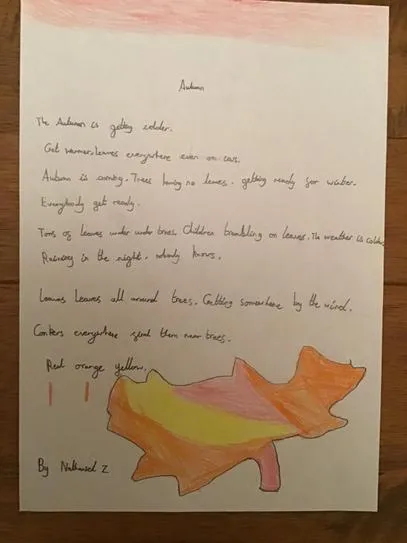 Autumn
The Autumn is getting colder.
Get warmer. leaves everywhere even on cars.
Autumn is coming. Trees having no leaves. getting ready for winter.
Everybody get ready.
Tons of leaves under under trees. Children trembling on leaves. The weather is colder
Raining in the night. nobody knows.
Leaves Leaves all around trees. Getting somewhere by the wind.
Conkers everywhere find them near trees.
Red orange yellow.
By Nathanael Z